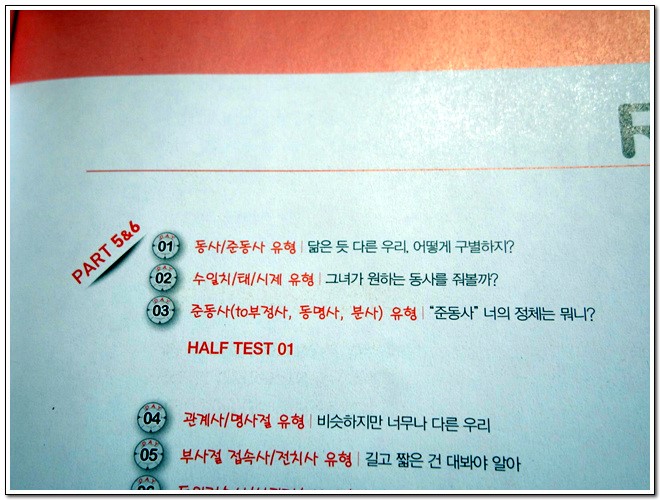 PART 5&6
DAY 01 동사/준동사 유형 | 닮은 듯 다른 우리, 어떻게 구별하지?
DAY 02 수일치/태/시제 유형 | 그녀가 원하는 동사를 줘볼까?
DAY 03 준동사(to부정사, 동명사, 분사) 유형 | "준동사" 너의 정체는 뭐니?
HALF TEST 01
DAY 04 관계사/명사절 유형 | 비슷하지만 너무나 다른 우리
DAY 05 부사절 접속사/전치사 유형 | 길고 짧은 건 대봐야 알아
06